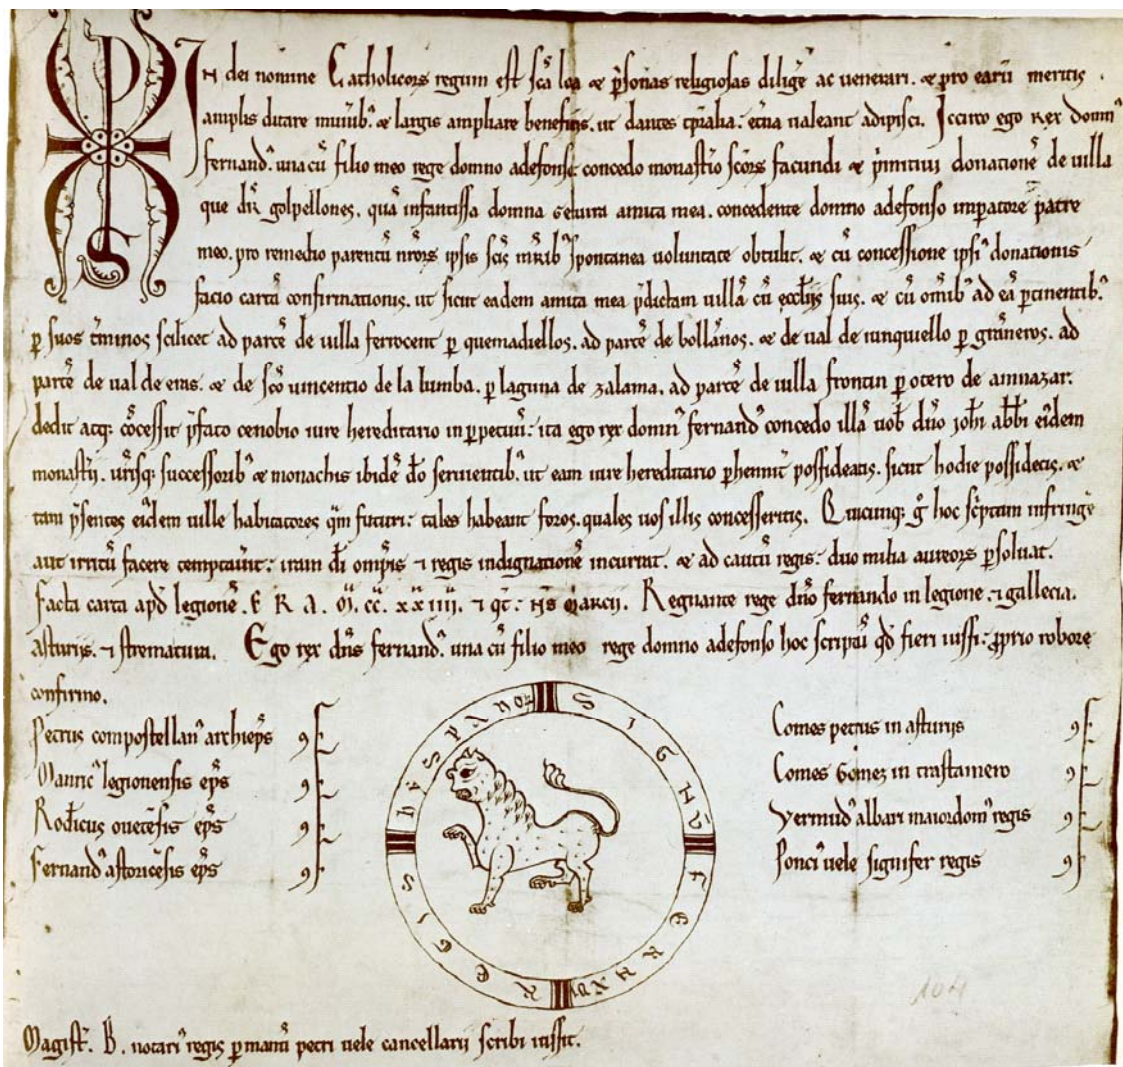 XPS
IN dei nomine Catholicoꝝ regum est sc̃a loca ⁊ p̃sonas religiosas diligẽ ac uenerari. ⁊ pro earũ meritis
amplis ditare munib᾽. ⁊ largis ampliare beneficijs. ut dantes tp̃ralia: et̃na ualeant adipisci. Iccirco ego rex domn᾽
fernand᾽. una cũ filio meo rege domno adefonso: concedo monast̃io sc̃oꝝ facundi ⁊ p̃mitiui donationẽ de uilla
que dr̃ golpellones. quã infantissa domna geluira amita mea. concedente domno adefonso imperatore patre
meo. pro remedio parentũ nr̃oꝝ ipsis sc̃is mr̃ib᾽ spontanea uoluntate obtulit. ⁊ cũ concessione ipsi᾽ donationis
facio cartã confirmationis. ut sicut eadem amita mea p̃dictam uillã cũ eccl̃ijs suis. ⁊ cũ om̃ib᾽ ad eã ꝑtinentib᾽.
ꝑ suos t̃minos scilicet ad partẽ de uilla ferrocent ꝑ quemadiellos. ad partẽ de bollaños. ⁊ de ual de iunquiello ꝑ grãneros. ad
partẽ de ual de eras. ⁊ de sc̃o uincentio de la lumba. ꝑ laguna de zalama. ad partẽ de uilla frontin ꝑ otero de amnazar.
dedit atq; cõcessit p̃fato cenobio iure hereditario in ꝑpetuũ: ita ego rex domn᾽ fernand᾽ concedo illã uob̃ dño joh̃i abb̃i ei᾽dem
monast̃ij. ur̃isq; successorib᾽ ⁊ monachis ibidẽ do᷉ seruientib᾽. ut eam iure hereditario ꝑhennit̃ possideatis. sicut hodie possidetis. ⁊
tam p̃sentes ei᾽dem uille habitatores qm̃ futuri: tales habeant foros. quales uos illis concesseritis. Quicunq; g̊ hoc sc̃ptum infringẽ
aut irritũ facere temptau̾it: iram di᷉ omp̃tis ⁊ regis indignationẽ incurrat. ⁊ ad cautũ regis: duo milia aureoꝝ ꝑsoluat.
Facta carta apd̃ legionẽ. E R A. M̃. cc. xx iiii. ⁊ qt̃: ñs marcij. Regnante rege dño fernando in legione. ⁊ gallecia.
asturijs. ⁊ strematura. Ego rex dñs fernand᾽. una cũ filio meo rege domno adefonso hoc scriptũ qd̃ fieri iussi: ꝓprio robore
confirmo.
Petrus compostellan᾽ archiep̃s 9f.
Manric᾽ legionensis ep̃s 9f.
Rod̃icus ouetẽsis ep̃s 9f.
Fernand᾽ astoricẽsis ep̃s 9f.
SIGNŨ FERNANDI REGIS HISPANOꝝ
Comes petrus in asturijs 9f.
Comes Gomez in trastamero 9f.
Vermud᾽ albari maiordom᾽ regis 9f.
Ponci᾽ uele signifer regis 9f.
104
Magist̃. B. notari᾽ regis ꝑ manũ petri uele cancellarii scribi iussit.